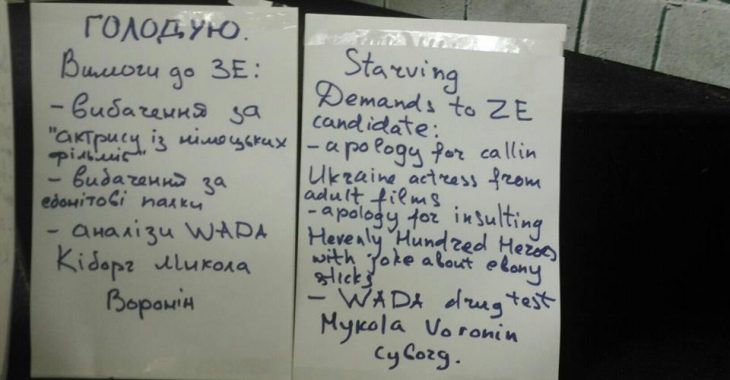 ГОЛОДУЮ.
Вимоги до ЗЕ:
- вибачення за
"актрису із німецьких
фільмів"
- вибачення за
ебонітові палки
- аналізи WADA
Кіборг Микола
Воронін
Starving
Demands to ZE
candidate:
- apology for callin
Ukraine actress from
adult films
- apology for insulting
Hevenly Hundred Heroes
with joke about ebony
sticks
- WADA drug test
Mykola Voronin
cyborg.